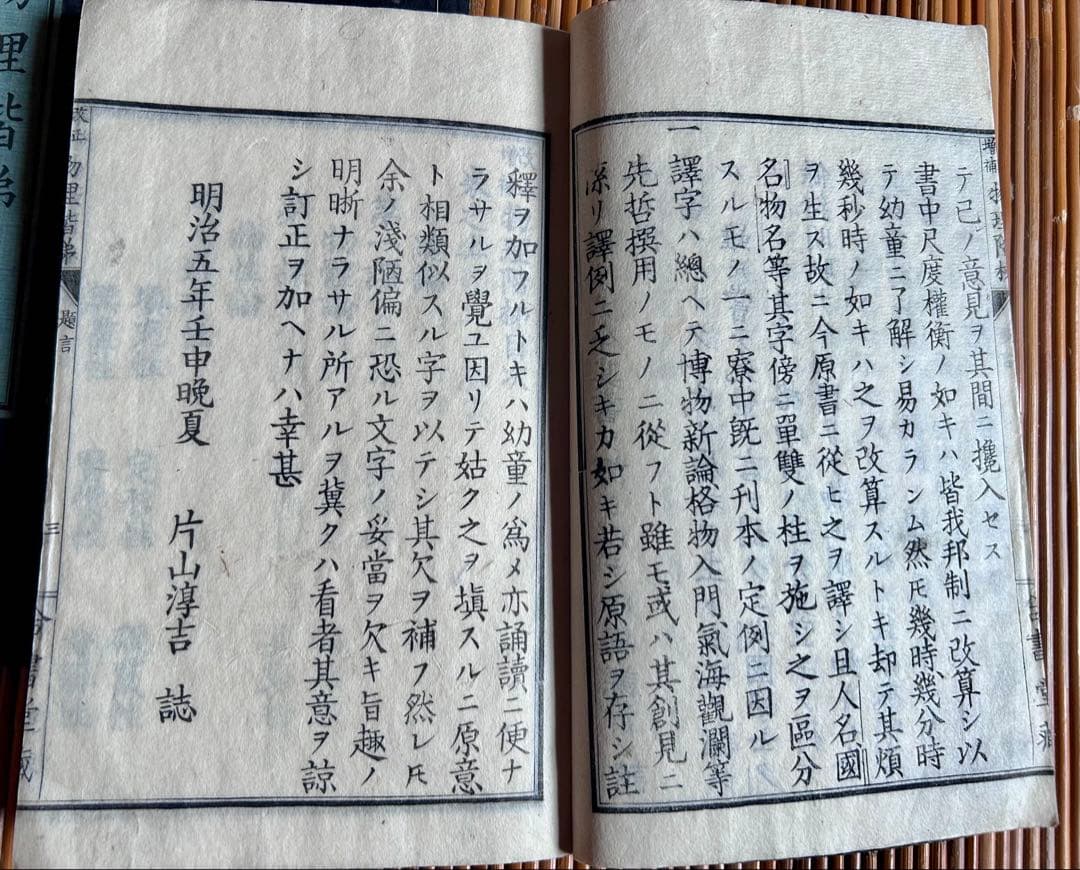 テ己ノ意見ヲ其間ニ攙入セス
書中尺度權衡ノ如キハ皆我邦制ニ改算シ以
テ幼童ニ了解シ易カランム然𪜈幾時、幾分時
幾秒時ノ如キハ之ヲ改算スルトキ却テ其煩
ヲ生ス故ニ今原書ニ從ヒ之ヲ譯シ且人名國
名物名等其字傍ニ單雙ノ柱ヲ施シ之ヲ區分
スルモノ一ニ寮中既ニ刊本ノ定例ニ因ル
一譯字ハ總ヘテ博物新論格物入門、氣海觀瀾等
先哲撰用ノモノニ從フト雖モ、或ハ其創見ニ
係リ譯例ニ乏シキカ如キ若シ原語ヲ存シ註
釋ヲ加フルトキハ幼童ノ爲メ亦誦讀ニ便ナ
ラサルヲ覺ユ因リテ姑ク之ヲ塡スルニ原意
ト相類似スル字ヲ以テシ其欠ヲ補フ然レ𪜈
余ノ淺陋偏ニ恐ル文字ノ妥當ヲ欠キ旨趣ノ
明晰ナラサル所アルヲ冀クハ看者其意ヲ諒
シ訂正ヲ加ヘナハ幸甚
明治五年壬申晩夏 片山淳吉 誌
改正 物理階梯
題言
三
理階梯
增補